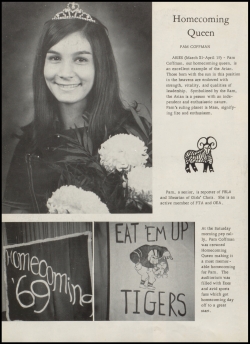 Homecoming
Queen
PAM COFFMAN
ARIES (March 21-April 19) - Pam
Coffman, our homecoming queen, is
an excellent example of the Aries.
Those born with the sun in this position
in the heavens are endowed with
strength, vitality, and qualities of
leadership. Symbolized by the Ram,
the Aries is a person with an inde-
pendent and enthusiastic nature.
Pam's ruling planet is Mars, signify-
ing fire and enthusiasm.
Pam, a senior, is reporter of FHLA
and Librarian of Girls' Choir. She is an
active member of FTA and GRA.
Homecoming
'69
EAT 'EM UP
TIGERS
At the Saturday
morning pep ral-
ly, Pam Coffman
was crowned
Homecoming
Queen making it
a most memor-
able homecoming
for Pam. The
auditorium was
filled with fans
and avid sports
fans which got
homecoming day
off to a great
start.